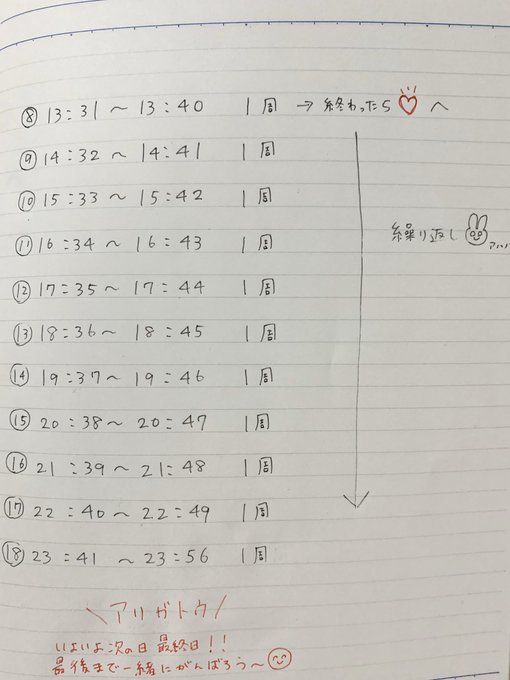 ⑧ 13:31～13:40 1周 → 終わったら♡へ
⑨ 14:32～14:41 1周
⑩ 15:33～15:42 1周
繰り返し
アハハ
⑪ 16:34～16:43 1周
⑫ 17:35～17:44 1周
⑬ 18:36～18:45 1周
⑭ 19:37～19:46 1周
⑮ 20:38～20:47 1周
⑯ 21:39～21:48 1周
⑰ 22:40～22:49 1周
⑱ 23:41～23:56 1周
＼アリガトウ/
いよいよ次の日最終日!!
最後まで一緒にがんばろう～